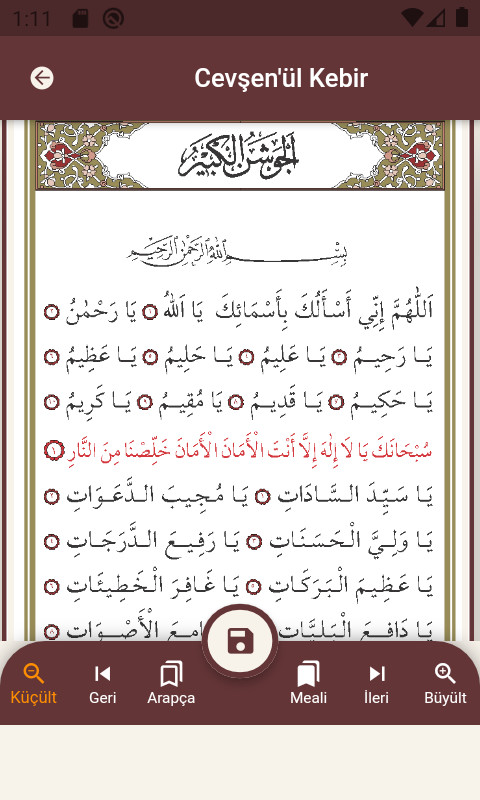 1:11
Cevşen'ül Kebir
اَلْجَوْشَنُ الْكَبِيرُ
بِسْــــمِ اللّٰهِ الرَّحْمٰنِ الرَّحِيمِ
اَللّٰهُمَّ إِنِّي أَسْأَلُكَ بِأَسْمَائِكَ يَا اَللّٰهُ ١ يَا رَحْمٰنُ ٢
يَا رَحِيمُ ٣ يَا عَلِيمُ ٤ يَا حَلِيمُ ٥ يَا عَظِيمُ ٦
يَا حَكِيمُ ٧ يَا قَدِيمُ ٨ يَا مُقِيمُ ٩ يَا كَرِيمُ ١٠
سُبْحَانَكَ يَا لَا إِلٰهَ إِلَّا أَنْتَ الْأَمَانَ الْأَمَانَ خَلِّصْنَا مِنَ النَّارِ ١
يَا سَيِّدَ السَّادَاتِ ١ يَا مُجِيبَ الدَّعَوَاتِ ٢
يَا وَلِيَّ الْحَسَنَاتِ ٣ يَا رَفِيعَ الدَّرَجَاتِ ٤
يَا عَظِيمَ الْبَرَكَاتِ ٥ يَا غَافِرَ الْخَطِيئَاتِ ٦
يَا دَافِعَ الْبَلِيَّاتِ امِعَ الْأَصْوَاتِ ٨
Küçült
Geri
Arapça
Meali
İleri
Büyült